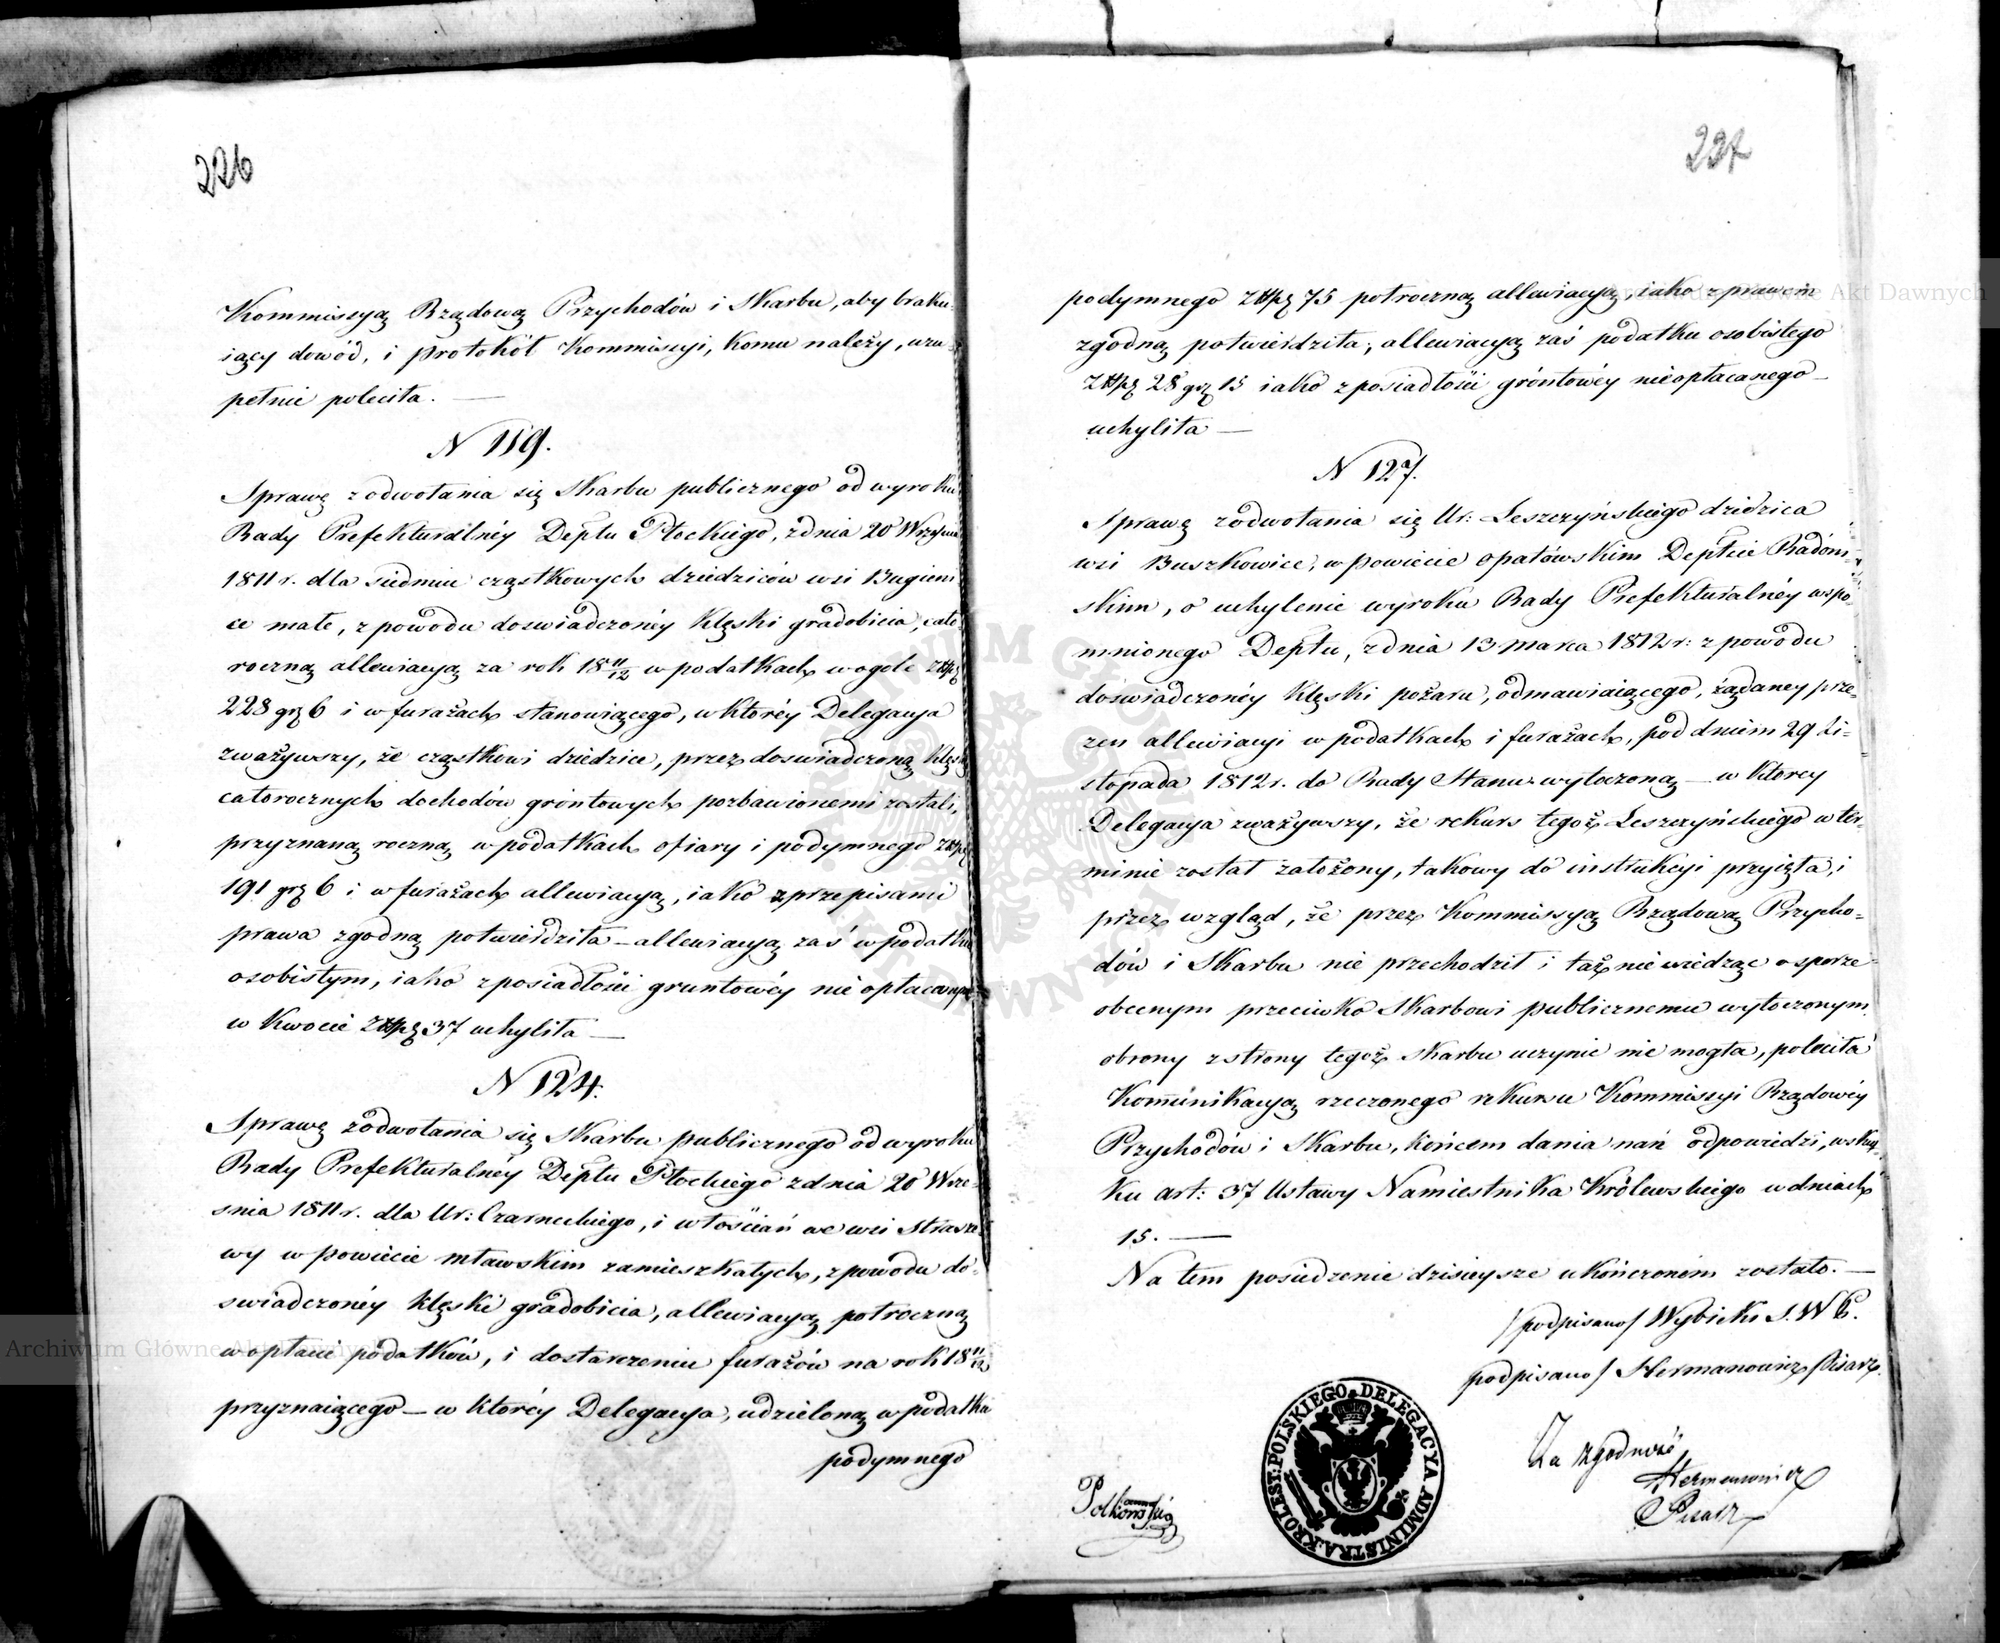 226
Kommissyą Rządową Przychodów i Skarbu, aby braku-
iący dowód, i protokół Kommissyi, komu należy, uzu-
pełnić poleciła. —
N 119.
Sprawę z odwołania się Skarbu publicznego od wyroku
Rady Prefekturalnéy Deptu Płockiego, z dnia 20 Wrześnis
1811 r. dla siedmiu cząstkowych dziedziców wsi Bugieni
ce małe, z powodu doswiadczonéy klęski gradobicia, cało-
roczną allewiacyą za rok 18 11/12 w podatkach w ogole złtpl
228 gr 6 i w furażach stanowiącego, w któréy Delegacya
zważywszy, że cząstkowi dziedzice, przez doswiadczoną klęskę
całorocznych dochodów gróntowych pozbawionemi zostali,
przyznaną roczną w podatkach ofiary i podymnego złtpl
191 gr 6 i w furażach allewiacyą, iako z przepisami
prawa zgodną potwierdziła — allewiacyą zaś w podatku
osobistym, iako z posiadłości gruntowéy nie opłacanym
w kwocie złtpl 37 uchyliła —
N 124.
Sprawę z odwołania się Skarbu publicznego od wyroku
Rady Prefekturalnéy Deptu Płockiego z dnia 20 Wrze-
śnia 1811 r. dla Ur: Czarneckiego, i włościan we wsi Strasze
wy w powiecie mławskim zamieszkałych, z powodu do-
swiadczonéy klęski gradobicia, allewiacyą półroczną
w opłacie podatków, i dostarczeniu furażów na rok 18 11/12
przyznaiącego — w któréy Delegacya, udzieloną w podatku
podymnego
227
podymnego złtpl 75 półroczną allewiacyą, iako z prawem
zgodną potwierdziła, allewiacyą zaś podatku osobistego
złtpl 28 gr 15 iako z posiadłości gróntowéy nieopłacanego —
uchyliła —
N 127.
Sprawę z odwołania się Ur: Leszczyńskiego dziedzica
wsi Buszkowice, w powiecie opatowskim Deptcie Radom-
skim, o uchylenie wyroku Rady Prefekturalnéy wspo-
mnionego Deptu, z dnia 13 marca 1812 r: z powodu
doświadczonéy klęski pożaru, odmawiaiącego, żądaney prze-
zeń allewiacyi w podatkach i furażach, pod dniem 29 Li-
stopada 1812 r. do Rady Stanu wytoczoną — w którey
Delegacya zważywszy, że rekurs tegoż Leszczyńskiego w ter-
minie został założony, takowy do instrukcyi przyięła, i
przez wzgląd, że przez Kommissyą Rządową Przycho-
dów i Skarbu nie przechodził i taż nie wiedząc o sporze
obecnym przeciwko Skarbowi publicznemu wytoczonym
obrony z strony tegoż skarbu uczynić nie mogła, poleciła
Kommunikacyą rzeczonego rekursu Kommissyi Rządowéy
Przychodów i Skarbu, końcem dania nań odpowiedzi, w skut-
ku art: 37 Ustawy Namiestnika Królewskiego w dniach
15. —
Na tem posiedzenie dzisieysze ukończonem zostało. —
/podpisano/ Wybicki S. W P.
podpisano/ Hermanowicz Pisarz.
Za zgodność
Hermanowicz
Pisarz
Potkański
KROLEST: POLSKIEGO DELEGACYA ADMINISTRA:
Archiwum Główne Akt Dawnych
ARCHIWUM GŁÓWNE AKT DAWNYCH